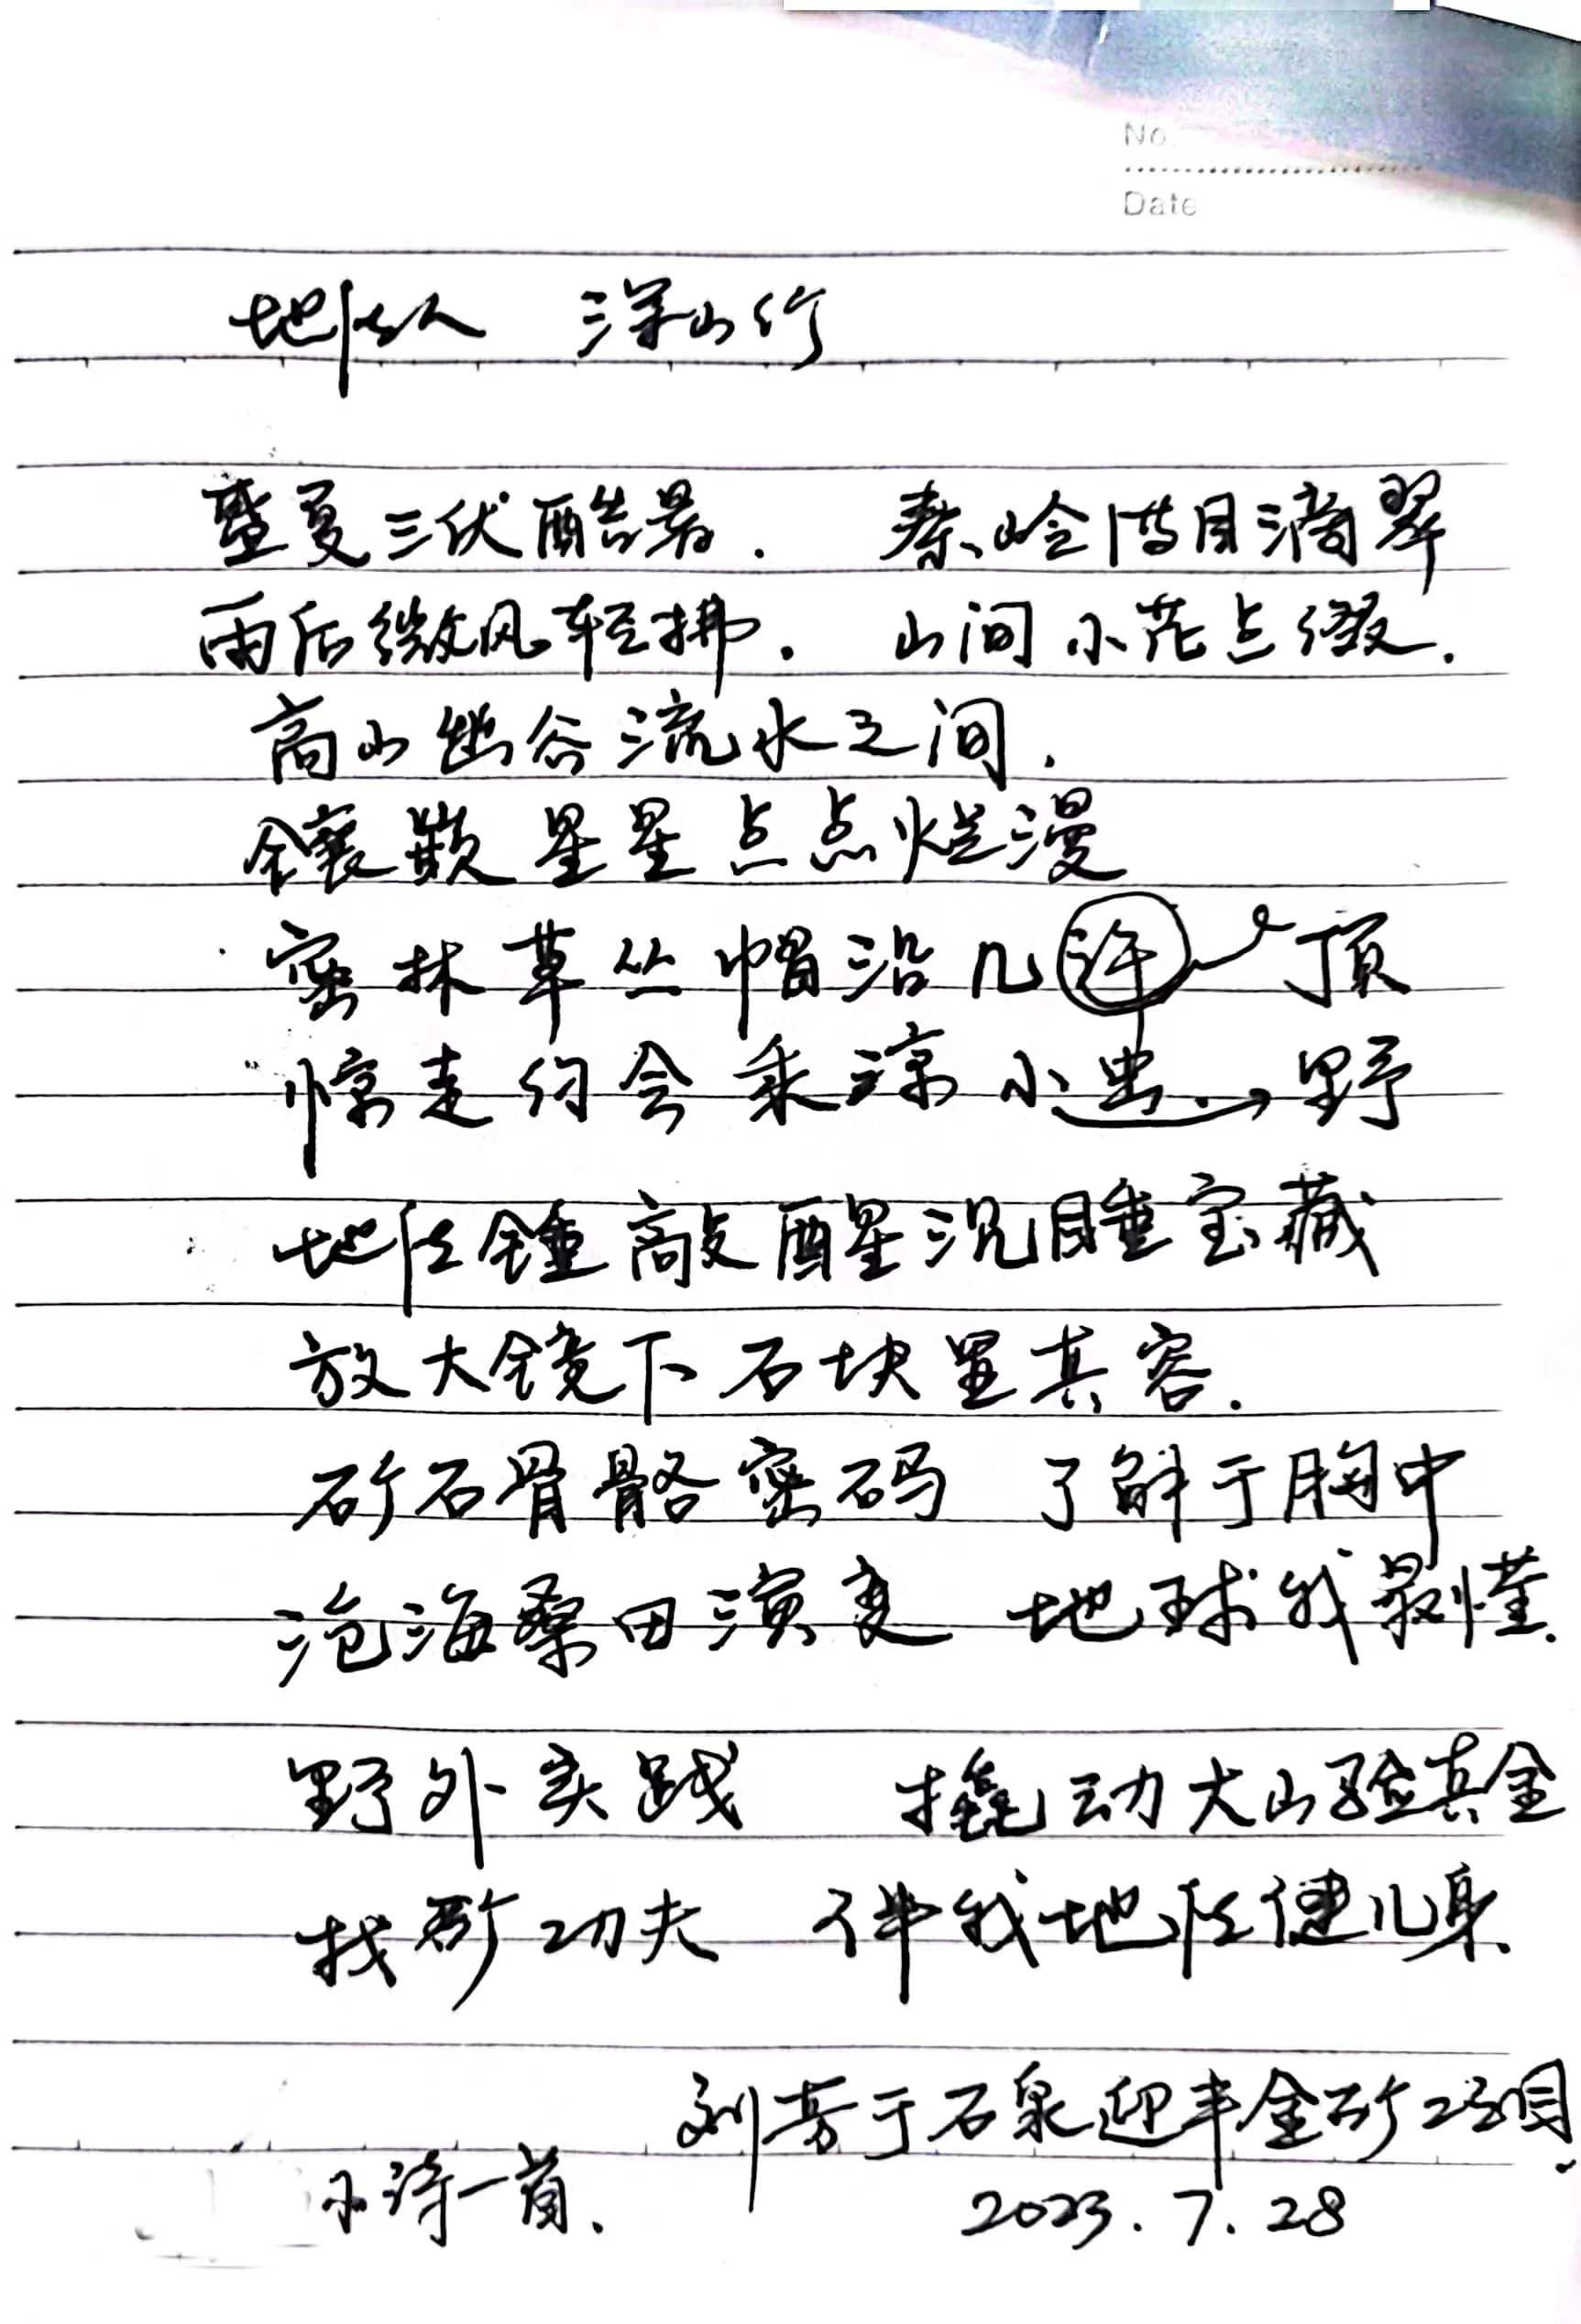 No.
Date
地质人 深山行
盛夏三伏酷暑. 秦岭满目滴翠
雨后微风轻拂. 山间小花点缀.
高山幽谷流水之间.
镶嵌星星点点烂漫
密林草丛帽沿几许 顶
惊走约会乘凉小虫. 野
地质锤敲醒沉睡宝藏
放大镜下石块显真容.
矿石骨骼密码 了解于胸中
沧海桑田演变 地球我最懂.
野外实践 撬动大山验真金
找矿功夫 伴我地质健儿身.
刘芳于石泉迎丰金矿项目.
小诗一首. 2023.7.28